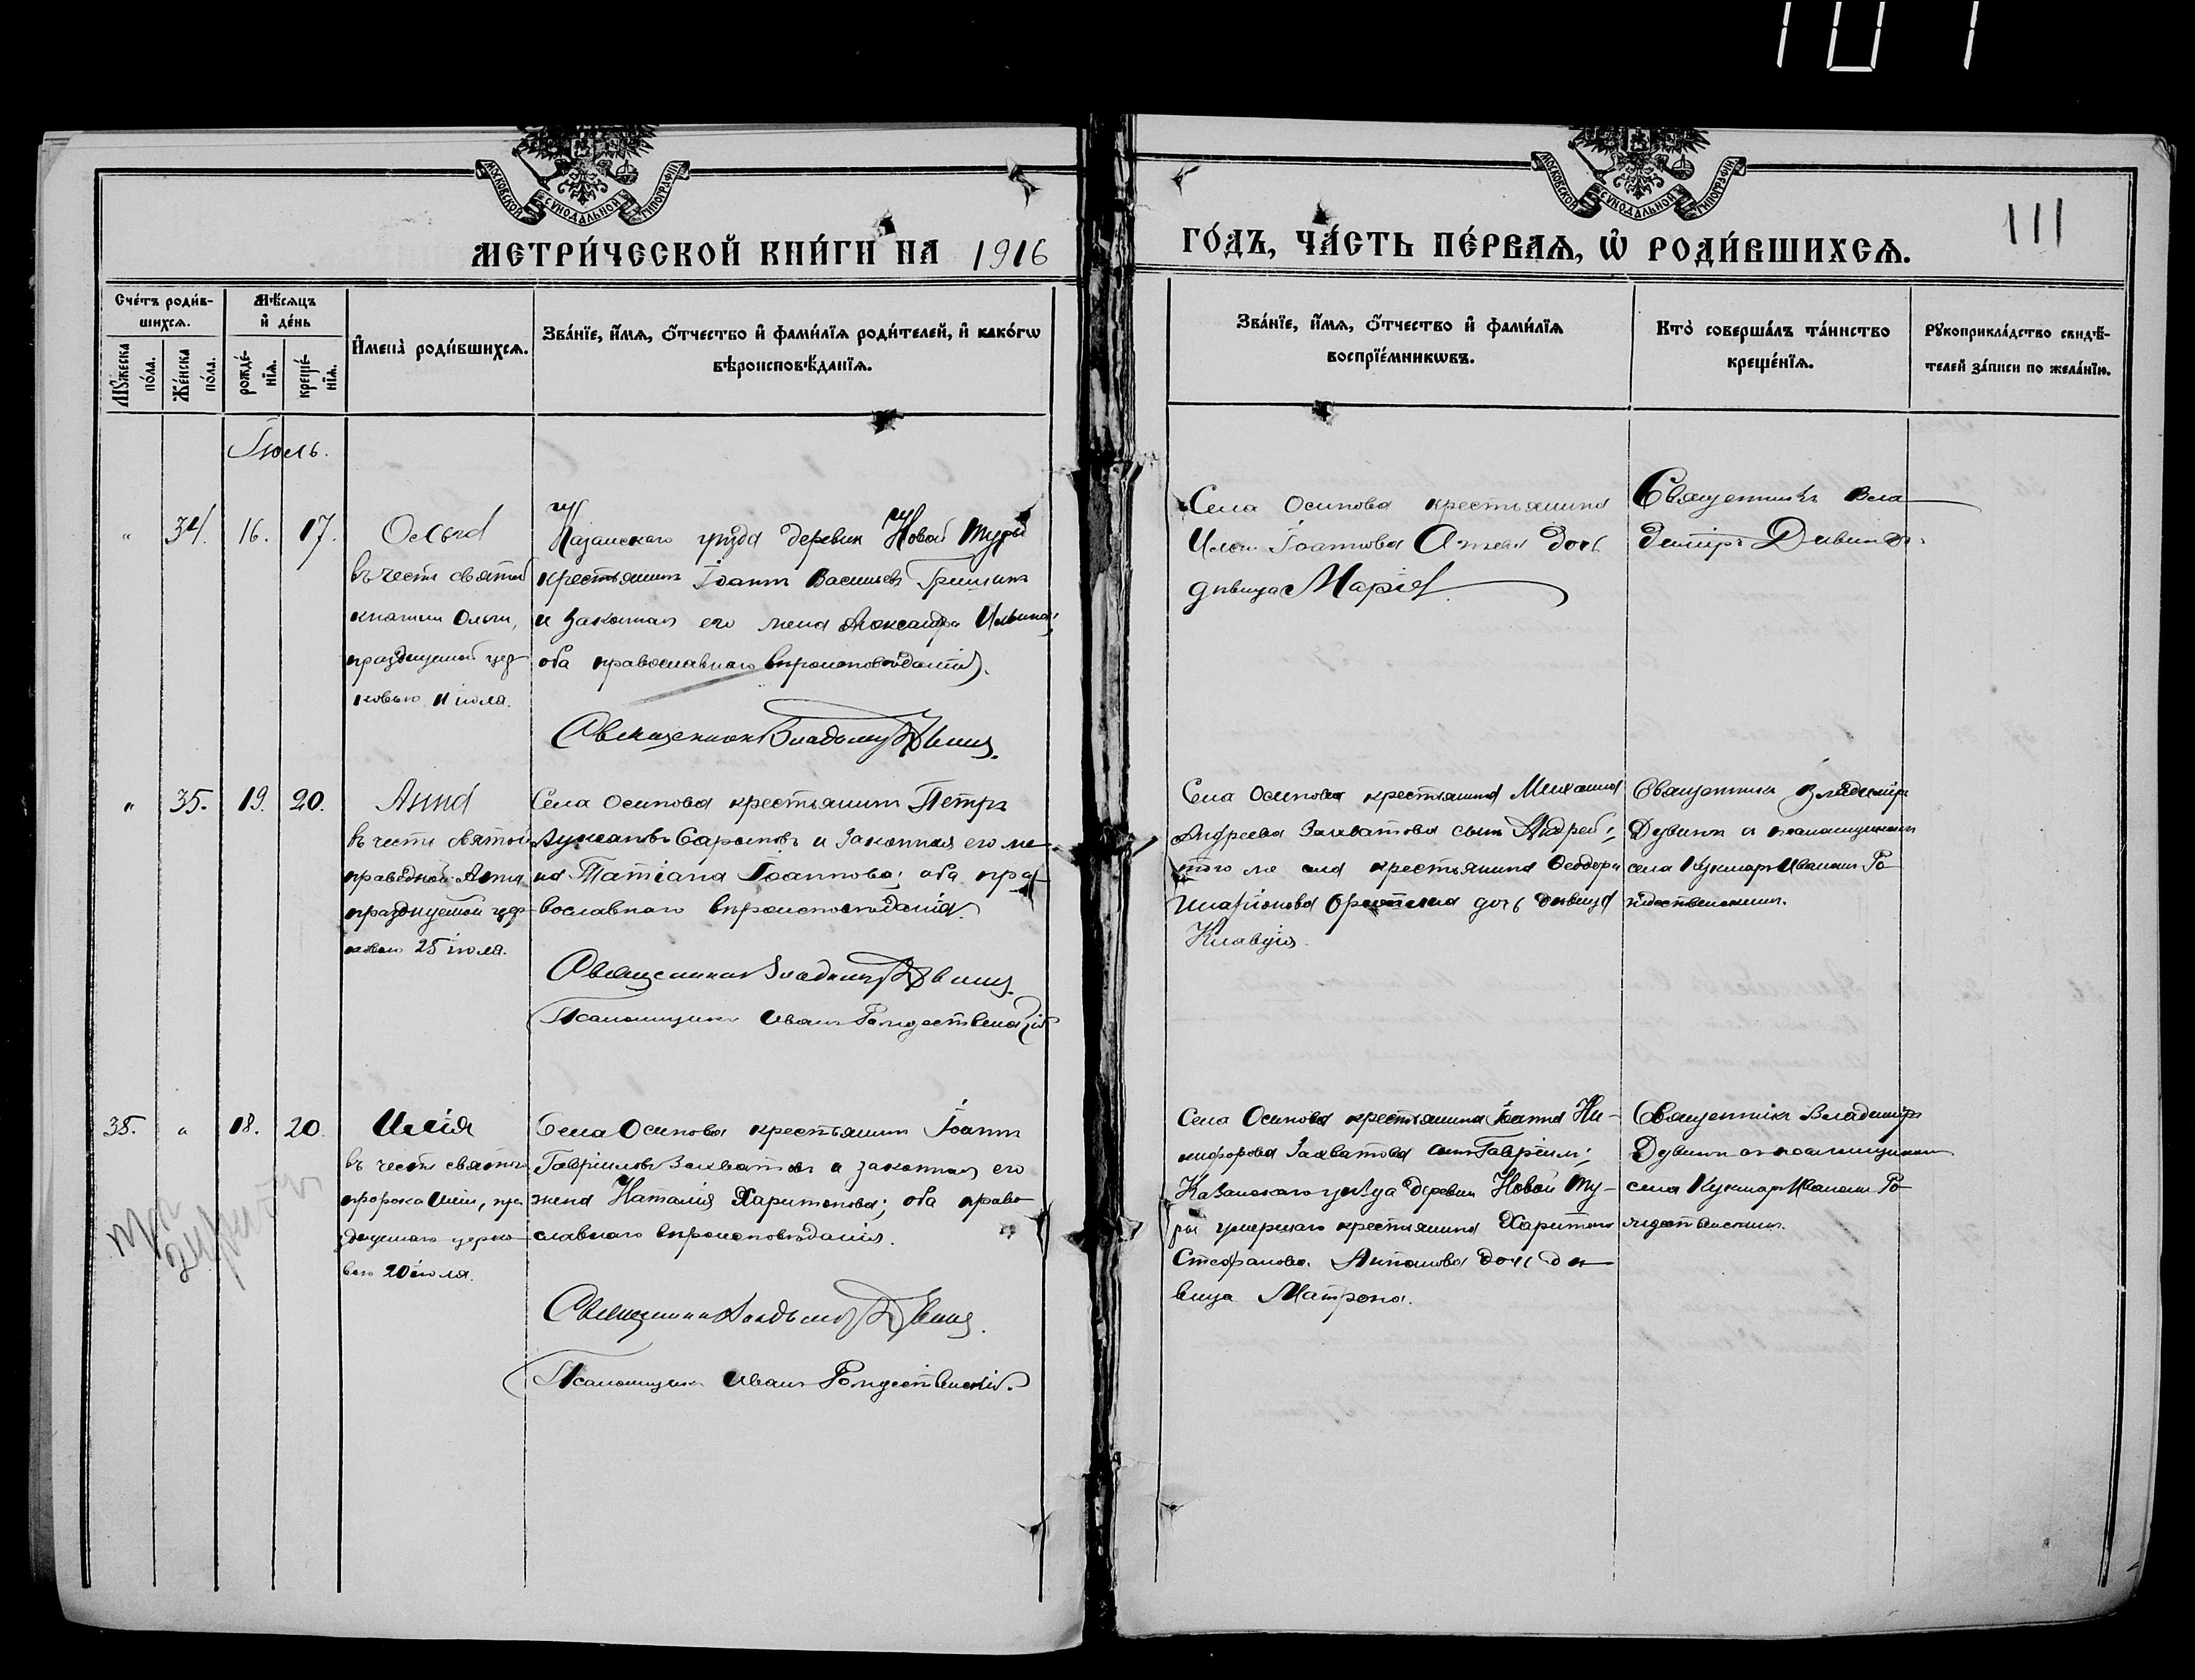 МОСКОВСКОЙ СѴНОДАЛЬНОЙ ТИПОГРАФІИ
МОСКОВСКОЙ СѴНОДАЛЬНОЙ ТИПОГРАФІИ
111
МЕТРИ́ЧЕСКОЙ КНИ́ГИ НА 1916
ГО́ДЪ, ЧА́СТЬ ПЕ́РВАѦ, Ѽ РОДИ́ВШИХСѦ.
Сче́тъ роди́в-
шихсѧ.
Мѣ́сѧцъ
и҆ де́нь
Мꙋ́жеска
по́ла.
Же́нска
по́ла.
рожде́-
нїѧ.
креще́-
нїѧ.
И҆мена̀ роди́вшихсѧ.
Зва́нїе, и҆́мѧ, ѻ҆́тчество и҆ фами́лїѧ роди́телей, и҆ како́гѡ
вѣроисповѣ́данїѧ.
Зва́нїе, и҆́мѧ, ѻ҆́тчество и҆ фами́лїѧ
воспрїе́мникѡвъ.
Кто̀ соверша́лъ та́инство
креще́нїѧ.
Рꙋкоприкла́дство свидѣ́-
телей за́писи по жела́нїю.
Іюль.
" 34. 16. 17. Ольга
въ честь святой
княгини Ольги,
празднуемой цер-
ковью 11 іюля.
Казанскаго уѣзда деревни Новой Туры
крестьянинъ Іоаннъ Васильевъ Гришинъ
и законная его жена Александра Ильина;
оба православнаго вѣроисповѣданія.
Священникъ Владиміръ Дувинъ.
Села Осинова крестьянина
Іоаннова дочь
дѣвица Марія.
Священникъ Вла-
диміръ Дувинъ.
" 35. 19. 20. Анна
въ честь святой
праведной Анны
празднуемой цер-
ковью 25 іюля.
Села Осинова крестьянинъ Петръ
и законная его же-
на Татіана Іоаннова; оба пра-
вославнаго вѣроисповѣданія.
Священникъ Владиміръ Дувинъ.
Псаломщикъ Иванъ Рождественскій
Села Осинова крестьянина Михаила
Андреева Захватова сынъ Андрей;
того же села крестьянина Ѳеодора
Иларіонова дочь дѣвица
Клавдія.
Священникъ Владиміръ
Дувинъ съ псаломщикомъ
села Кукмаръ Иваномъ Ро-
ждественскимъ.
35. " 18. 20. Илія
въ честь святаго
пророка Иліи, пра-
зднуемаго церко-
вью 20 іюля.
Села Осинова крестьянинъ Іоаннъ
Гавріиловъ Захватовъ и законная его
жена Наталія Харитонова; оба право-
славнаго вѣроисповѣданія.
Священникъ Владиміръ Дувинъ.
Псаломщикъ Иванъ Рождественскій.
Села Осинова крестьянина Іоанна Ни-
кифорова Захватова сынъ Гавріилъ;
Казанскаго уѣзда деревни Новой Ту-
ры умершаго крестьянина Харитона
Стефанова дочь дѣ-
вица Матрона.
Священникъ Владиміръ
Дувинъ съ псаломщикомъ
села Кукмаръ Иваномъ Ро-
ждественскимъ.